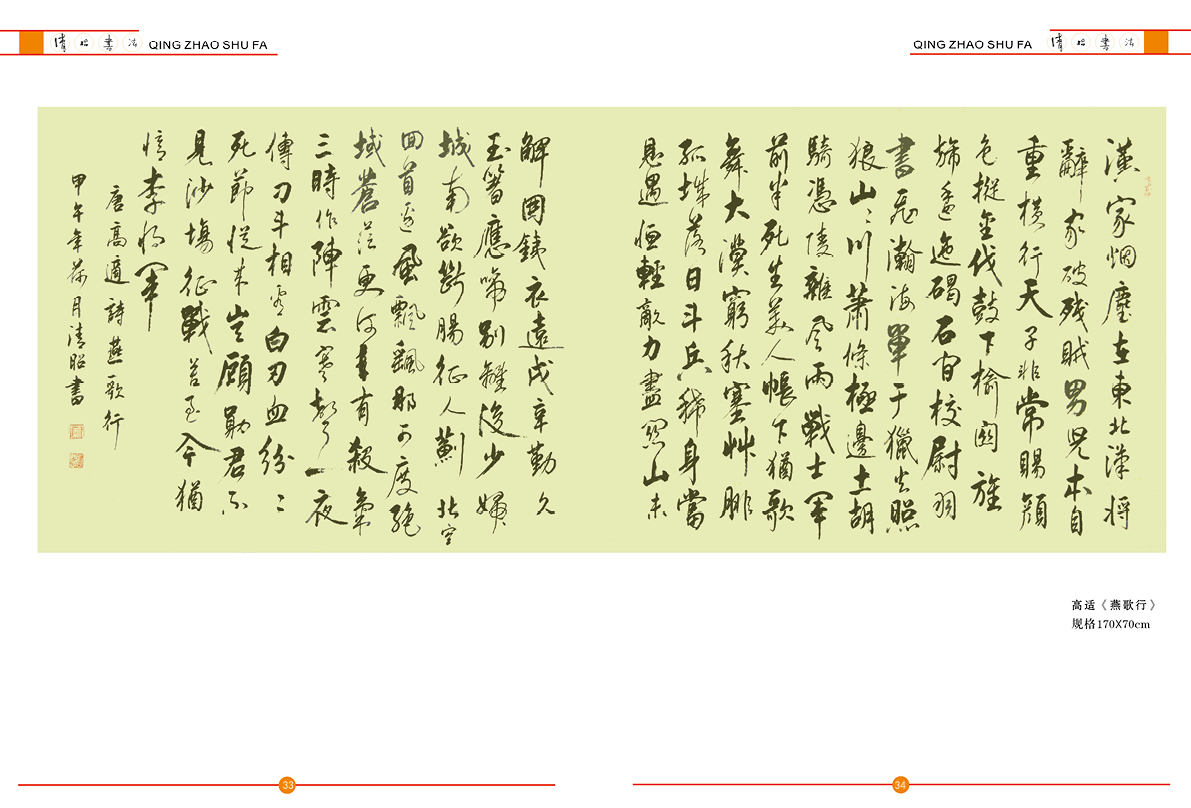 清昭書法 QING ZHAO SHU FA
QING ZHAO SHU FA 清昭書法
漢家烟塵在東北漢将
辭家破残賊男児本自
重横行天子非常賜顔
色摐金伐鼓下榆関旌
旆逶迤碣石間校尉羽
書飛瀚海單于獵火照
狼山〻川蕭條極邊土胡
騎憑陵雜風雨戰士軍
前半死生美人帳下猶歌
舞大漠窮秋塞艸腓
孤城落日斗兵稀身當
恩遇恒輕敵力盡関山未
解圍鐵衣遠戍辛勤久
玉箸應啼别離後少婦
城南欲斷腸征人薊北空
回首邊風飄飄那可度絶
域蒼茫更何有殺氣
三時作陣雲寒聲一夜
傳刁斗相看白刃血紛〻
死節從来豈顧勛君不
見沙場征戰苦至今猶
憶李将軍
唐高適詩燕歌行
甲午年月清昭書
高适《燕歌行》
规格170X70cm
33
34